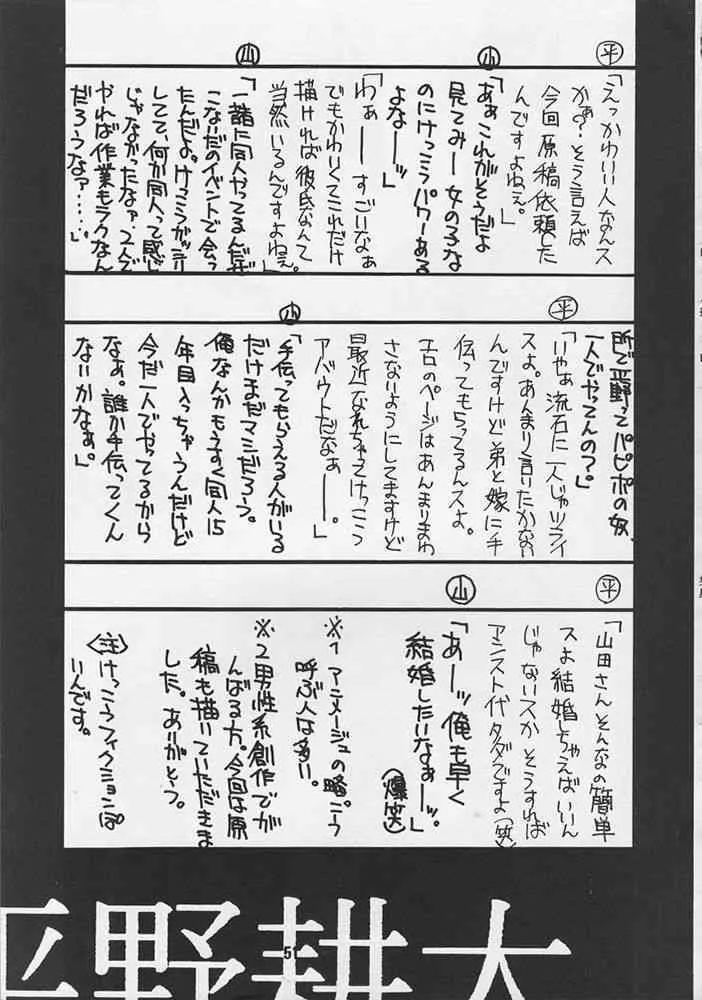 平
「えっかわいい人なんス
かぁ?そう言えば
今回原稿依頼した
んですよねぇ。」
山
「あぁこれがそうだよ
見てみー女の子な
のにけっこうパワーある
よなーッ」
「わぁーーすごいなぁ
でもかわいくてこれだけ
描ければ彼氏なんて
当然いるんですよねぇ。」
山
「一諸に同人やってるんだぜ
こないだのイベントで会っ
たんだよ。けっこうガッシリ
してて、何か同人って感じ
じゃなかったなァ、2人で
やれば作業もラクなん
だろうなァ……」
所で平野ってパピポの奴、
一人でやってんの?」
平
「いやぁ流石に一人じゃツライ
スよ。あんまり言いたかない
んですけど弟と嫁に手
伝ってもらってるんスよ。
エロのページはあんまりまわ
さないようにしてますけど
最近なれちゃえけっこう
アバウトだなぁー。」
山
「手伝ってもらえる人がいる
だけまだマシだろう。
俺なんかもうすぐ同人15
年目入っちゃうんだけど
今だ一人でやってるから
なぁ。誰か手伝ってくん
ないかなぁ。」
平
「山田さんそんなの簡単
スよ結婚しちゃえばいいん
じゃないスか そうすれば
アシスト代タダですよ(笑)
山
「あーッ俺も早く
結婚したいなぁーッ。」
(爆笑)
※1 アニメージュの略。こう
呼ぶ人は多い。
※2 男性系創作でが
んばる方。今回は原
稿も描いていただきま
した。ありがとう。
<注>けっこうフィクションぽ
いんです。
51
平野耕太